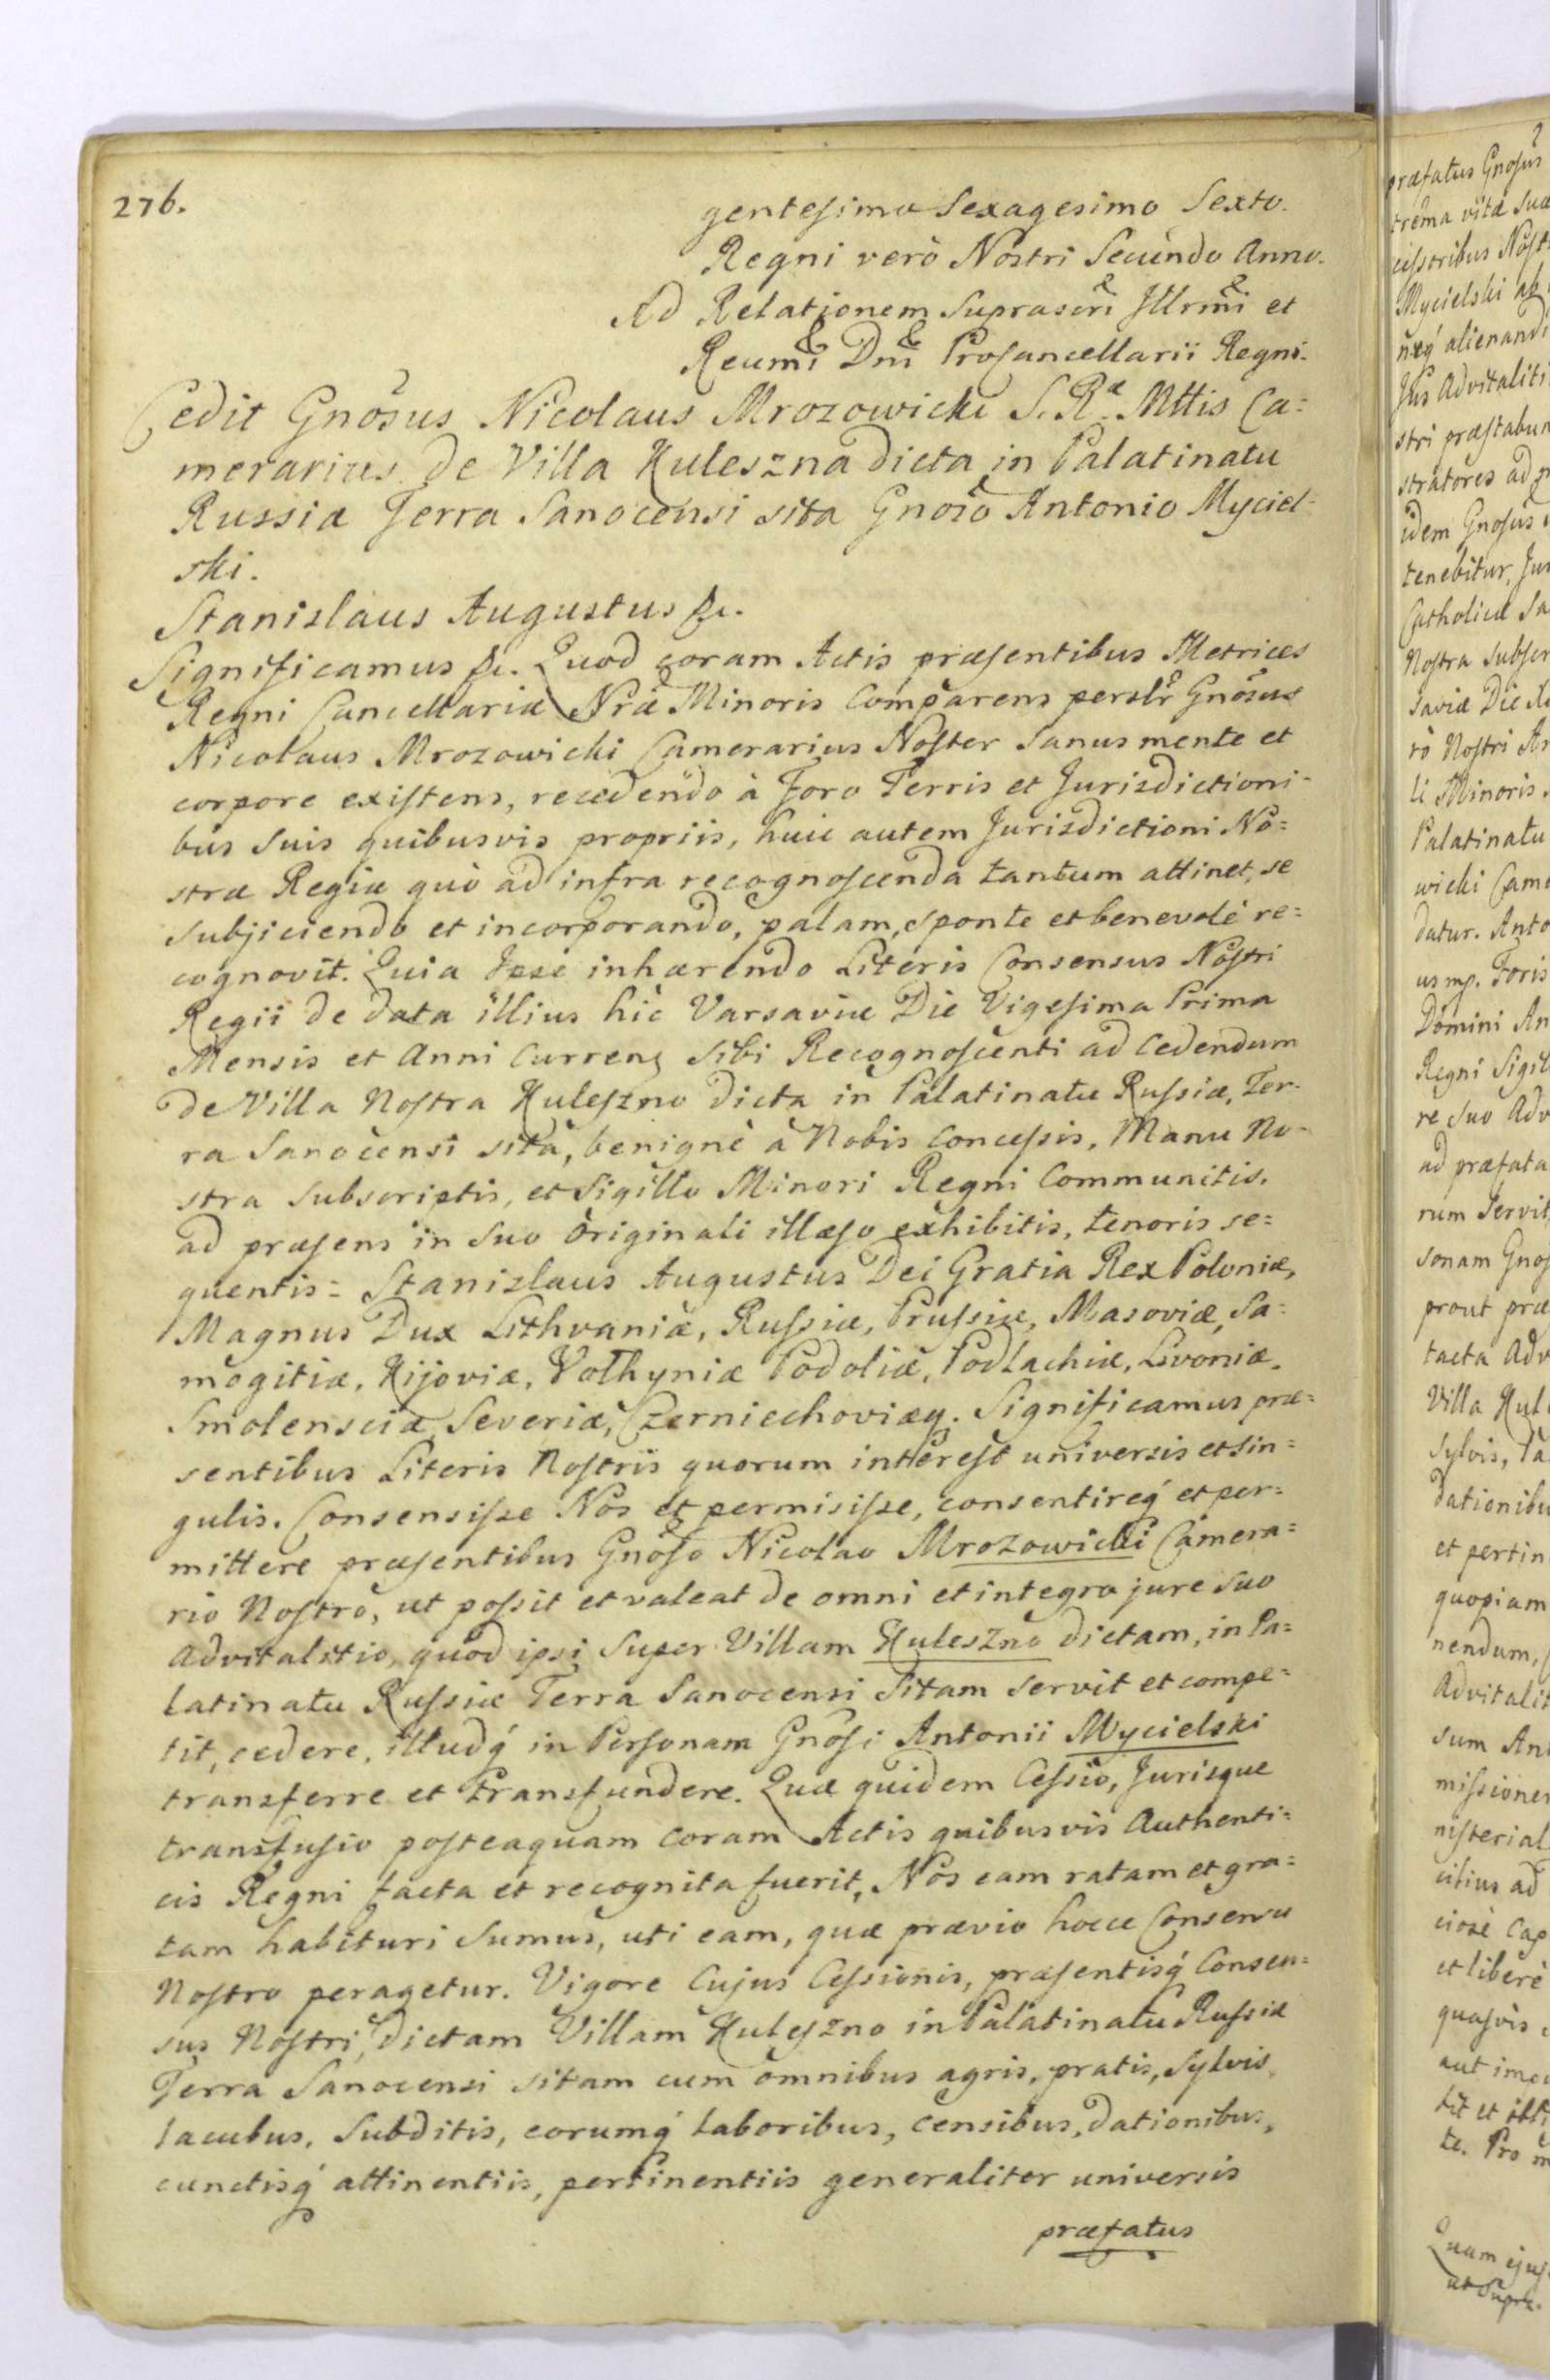 276.
gentesimo Sexagesimo Sexto.
Regni verò Nostri Secundo Anno.
Ad Relationem Suprascri Illrmi et
Reumi Dni Procancellarii Regni.
Cedit Gnosus Nicolaus Mrozowicki S. Ræ. Mttis Ca=
merarius de Villa Huleszna dicta in Palatinatu
Russiæ Terra Sanocensi sita Gnoso Antonio Myciel-
ski.
Stanislaus Augustus &c.
Significamus &c. Quod coram Actis præsentibus Metrices
Regni Cancellariæ Nræ Minoris Comparens perslr Gnosus
Nicolaus Mrozowicki Camerarius Noster Sanus mente et
corpore existens, recedendo à Foro Terris et Jurisdictioni-
bus Suis quibusvis propriis, huic autem Jurisdictioni No=
stræ Regiæ quò ad infra recognoscenda tantum attinet, se
subjiciendo et incorporando, palam, sponte et benevolè re=
cognovit. Quia Ipse inhærendo Literis Consensus Nostri
Regii de data illius hic Varsaviæ Die Vigesima Prima
Mensis et Anni Curren; Sibi Recognoscenti ad Cedendum
de Villa Nostra Huleszno dicta in Palatinatu Russiæ, Ter-
ra Sanocensi sita, benignè à Nobis Concessis, Manu No-
stra Subscriptis, et Sigillo Minori Regni Communitis,
ad præsens in Suo Originali illæso exhibitis, tenoris se=
quentis = Stanislaus Augustus Dei Gratia Rex Poloniæ,
Magnus Dux Lithvaniæ, Russiæ, Prussiæ, Masoviæ, Sa=
mogitiæ, Kijoviæ, Volhyniæ Podoliæ, Podlachiæ, Livoniæ,
Smolensciæ, Severiæ, Czerniechoviæq. Significamus præ=
sentibus Literis Nostris quorum interest universis et sin=
gulis. Consensisse Nos et permisisse, consentireq́ et per=
mittere præsentibus Gnoso Nicolao Mrozowicki Camera=
rio Nostro, ut possit et valeat de omni et integro jure Suo
Advitalitio, quod ipsi Super Villam Huleszno dictam, in Pa=
latinatu Russiæ Terra Sanocensi Sitam Servit et compe=
tit, cedere, illudq́ in Personam Gnosi Antonii Mycielski
transferre et transfundere. Quæ quidem Cessio, Jurisque
transfusio posteaquam Coram Actis quibusvis Authenti=
cis Regni facta et recognita fuerit, Nos eam ratam et gra=
tam habituri Sumus, uti eam, quæ prævio hocce Consensu
Nostro peragetur. Vigore Cujus Cessionis, præsentisq́ Consen=
sus Nostri, dictam Villam Huleszno in Palatinatu Russiæ
Terra Sanocensi sitam cum omnibus agris, pratis, Sylvis,
lacubus, Subditis, eorumq́ laboribus, Censibus, dationibus,
cunctisq́ attinentiis, pertinentiis generaliter universis
præfatus
præfatus Gnosus
trema vitæ suæ
Mycielski ab
Jus Advitaliti
stri præstabun
stratores ad
idem Gnosus
tenebitur, Jur
Catholicæ Sa
Nostra Subscr
saviæ Die
rò Nostri
li Minoris.
Palatinatu
wicki Came
datur. Anto
us mp.
Domini An
Regni Sigil
re Suo Adv
ad præfata
rum Servit
sonam Gnos
prout præ
tacta Adv
Villa Hul
Sylvis, La
dationibu
et pertin
quopiam
nendum,
Advitalit
sum An
missione
nisterial
citius ad
ciosè Cap
et liberè
quasvis
te. Pro
Quam ejus
ut Supra.